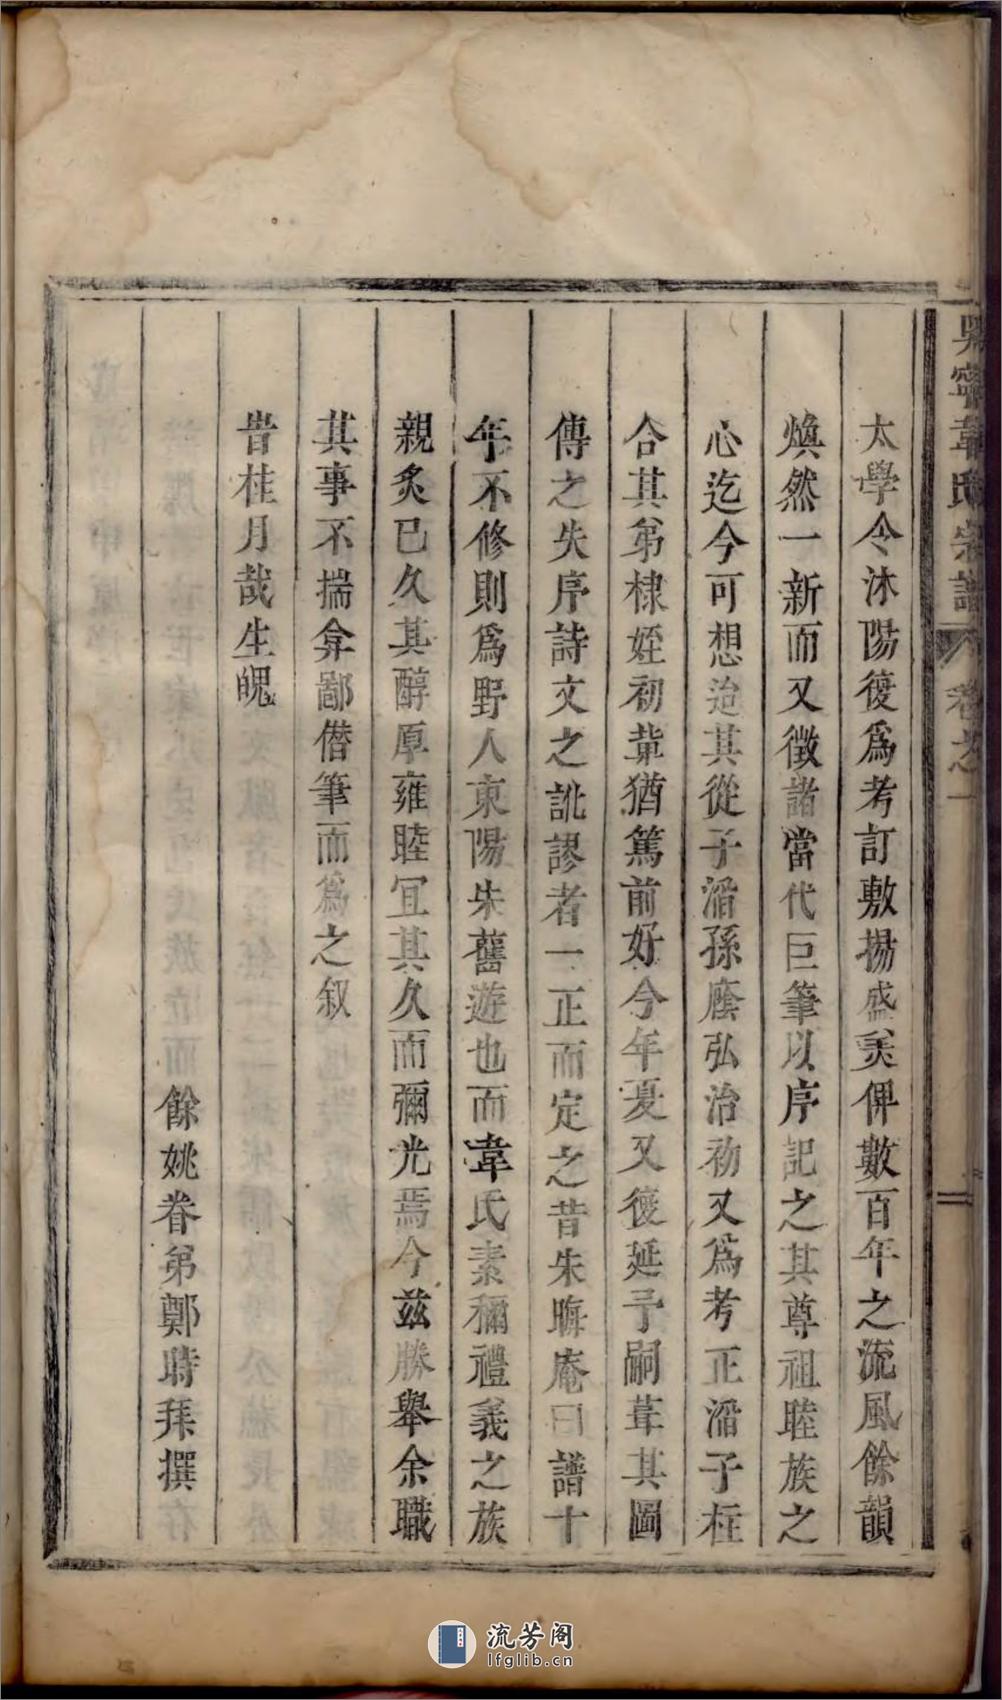 吳寧韋氏宗譜 卷之一
太學令沐陽復爲考訂敷揚盛美俾數百年之流風餘韻
煥然一新而又徵諸當代巨筆以序記之其尊祖睦族之
心迄今可想迨其從子湣孫廕弘治初又爲考正湣子柱
合其弟棣姪初韋猶篤前好今年夏又復延予嗣葺其圖
傳之失序詩文之訛謬者一正而定之昔朱晦庵曰譜十
年不修則爲野人東陽朱舊遊也而韋氏素稱禮義之族
親炙已久其醇厚雍睦冝其久而彌光焉今兹勝舉余職
其事不揣弇鄙僣筆而爲之叙
旹桂月哉生魄
餘姚眷弟鄭時拜撰
流芳阁
lfglib.cn